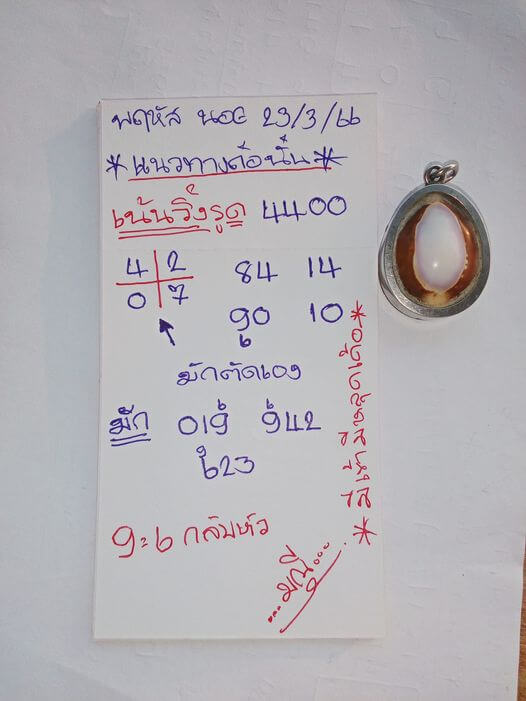 พฤหัส นอย 23/3/66
*แนวทางด๋อนั้น*
เน้นวิ่งรูด 4400
4 2
0 7
84 14
90 10
6
มักตัดเอง
มัก 019 942
6 6
623
9
9=6 กลับหัว
...มณี...